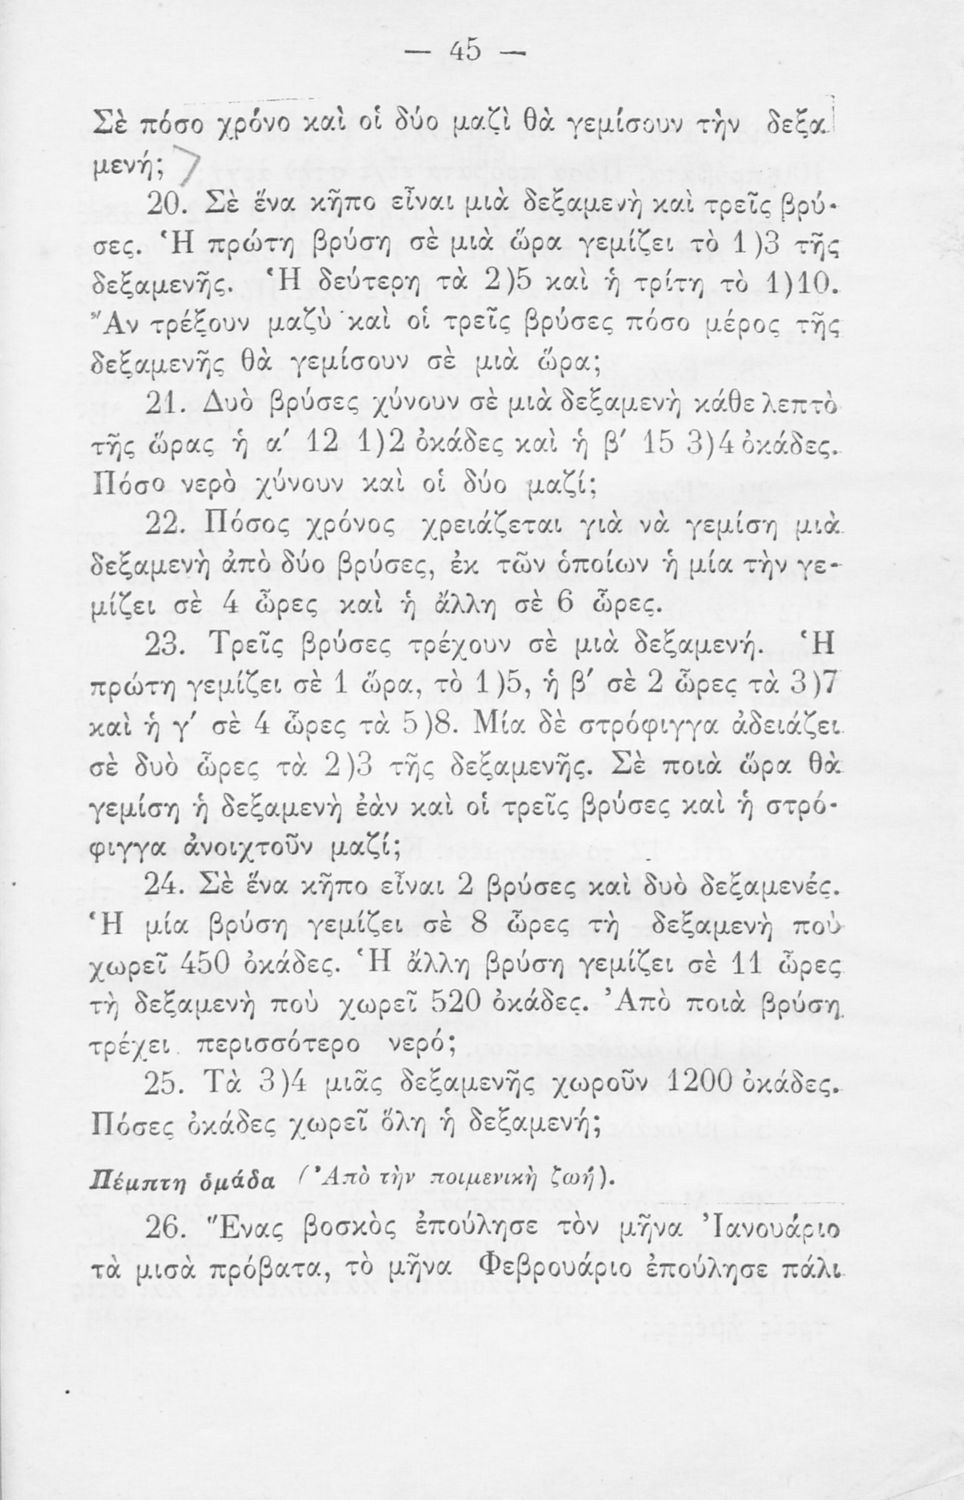 — 45 —
Σὲ πόσο χρόνο καὶ οἱ δύο μαζὶ θὰ γεμίσουν τὴν δεξα
μενή;
20. Σὲ ἕνα κῆπο εἶναι μιὰ δεξαμενὴ καὶ τρεῖς βρύ-
σες. Ἡ πρώτη βρύση σὲ μιὰ ὥρα γεμίζει τὸ 1)3 τῆς
δεξαμενῆς. Ἡ δεύτερη τὰ 2)5 καὶ ἡ τρίτη τὸ 1)10.
Ἂν τρέξουν μαζὺ καὶ οἱ τρεῖς βρύσες πόσο μέρος τῆς
δεξαμενῆς θὰ γεμίσουν σὲ μιὰ ὥρα;
21. Δυὸ βρύσες χύνουν σὲ μιὰ δεξαμενὴ κάθε λεπτὸ
τῆς ὥρας ἡ α′ 12 1)2 ὀκάδες καὶ ἡ β′ 15 3)4 ὀκάδες.
Πόσο νερὸ χύνουν καὶ οἱ δύο μαζί;
22. Πόσος χρόνος χρειάζεται γιὰ νὰ γεμίση μιὰ
δεξαμενὴ ἀπὸ δύο βρύσες, ἐκ τῶν ὁποίων ἡ μία τὴν γε-
μίζει σὲ 4 ὧρες καὶ ἡ ἄλλη σὲ 6 ὧρες.
23. Τρεῖς βρύσες τρέχουν σὲ μιὰ δεξαμενή. Ἡ
πρώτη γεμίζει σὲ 1 ὥρα, τὸ 1)5, ἡ β′ σὲ 2 ὧρες τὰ 3)7
καὶ ἡ γ′ σὲ 4 ὧρες τὰ 5)8. Μία δὲ στρόφιγγα ἀδειάζει
σὲ δυὸ ὧρες τὰ 2)3 τῆς δεξαμενῆς. Σὲ ποιὰ ὥρα θὰ
γεμίση ἡ δεξαμενὴ ἐὰν καὶ οἱ τρεῖς βρύσες καὶ ἡ στρό-
φιγγα ἀνοιχτοῦν μαζί;
24. Σὲ ἕνα κῆπο εἶναι 2 βρύσες καὶ δυὸ δεξαμενές.
Ἡ μία βρύση γεμίζει σὲ 8 ὧρες τὴ δεξαμενὴ ποὺ
χωρεῖ 450 ὀκάδες. Ἡ ἄλλη βρύση γεμίζει σὲ 11 ὧρες
τὴ δεξαμενὴ ποὺ χωρεῖ 520 ὀκάδες. Ἀπὸ ποιὰ βρύση
τρέχει περισσότερο νερό;
25. Τὰ 3)4 μιᾶς δεξαμενῆς χωροῦν 1200 ὀκάδες.
Πόσες ὀκάδες χωρεῖ ὅλη ἡ δεξαμενή;
Πέμπτη ὁμάδα (Ἀπὸ τὴν ποιμενικὴ ζωή).
26. Ἕνας βοσκὸς ἐπούλησε τὸν μῆνα Ἰανουάριο
τὰ μισὰ πρόβατα, τὸ μῆνα Φεβρουάριο ἐπούλησε πάλι